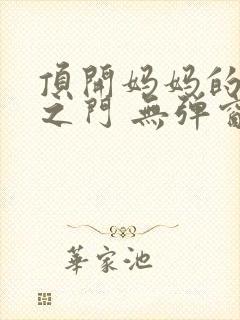 頂開妈妈的
之门 無弹窗
華家池